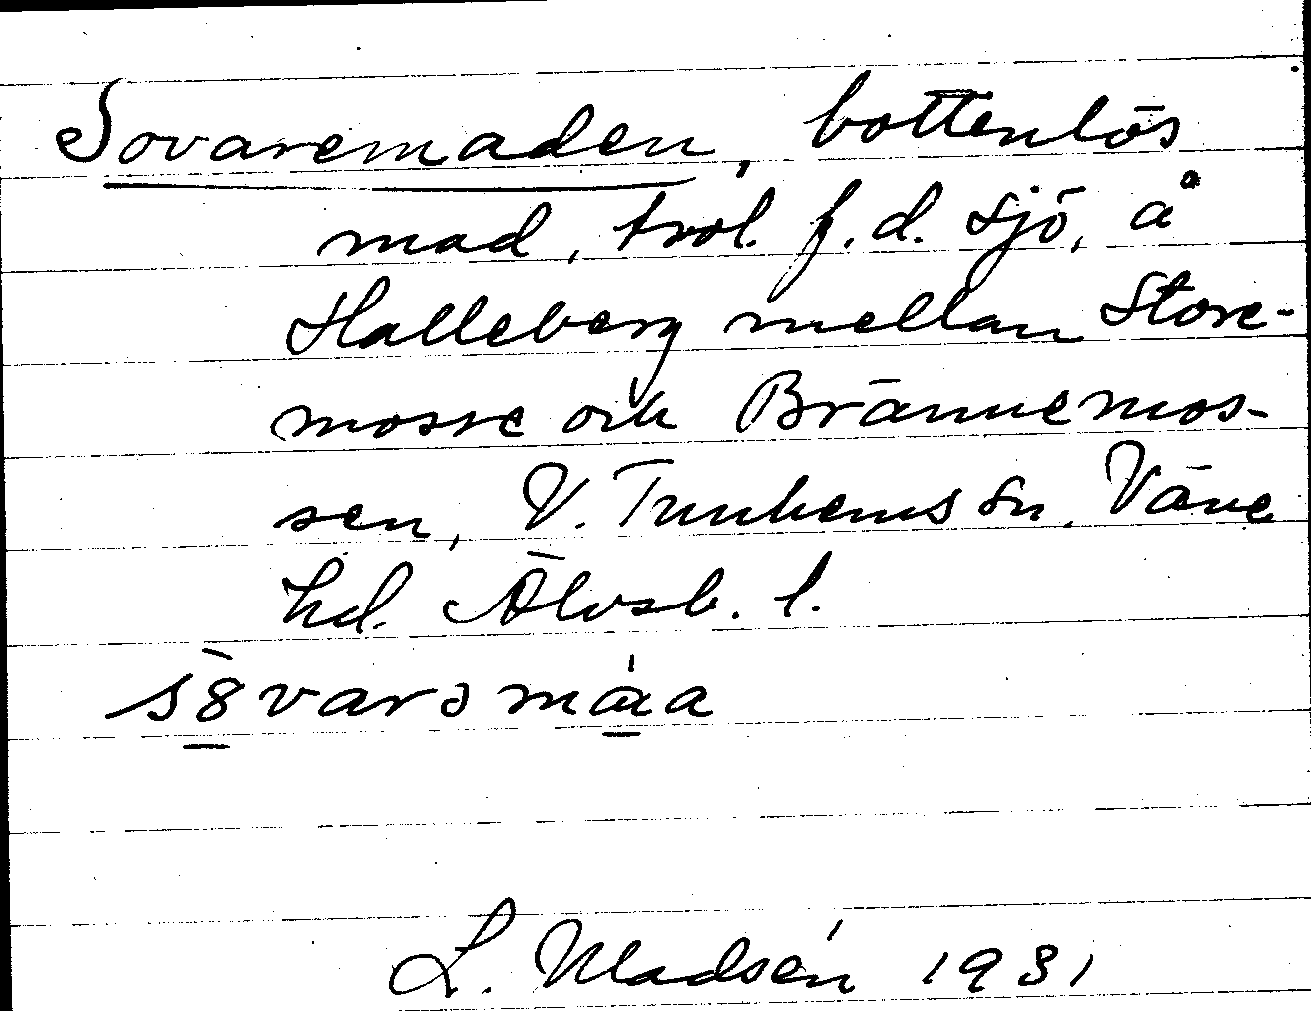 Sovaremaden, bottenlös
mad, trol. f.d. sjö, å
Halleberg mellan Store-
mosse och Brännemos-
sen, V. Tunhems sn. Väne
hd. Älvsb. l.
s8̀varəmáa
L. Madsén 1931